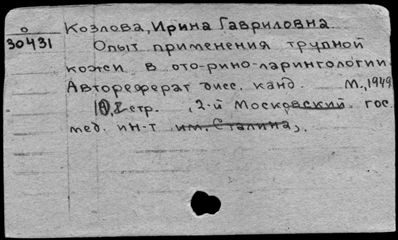 о
30431
Козлова, Ирина Гавриловна
Опыт применения трупной
кожи в ото-рино-ларингологии.
Автореферат дисс. канд. М., 1949
стр. , 2-й Московский гос.
мед. ин-т им. Сталина,.